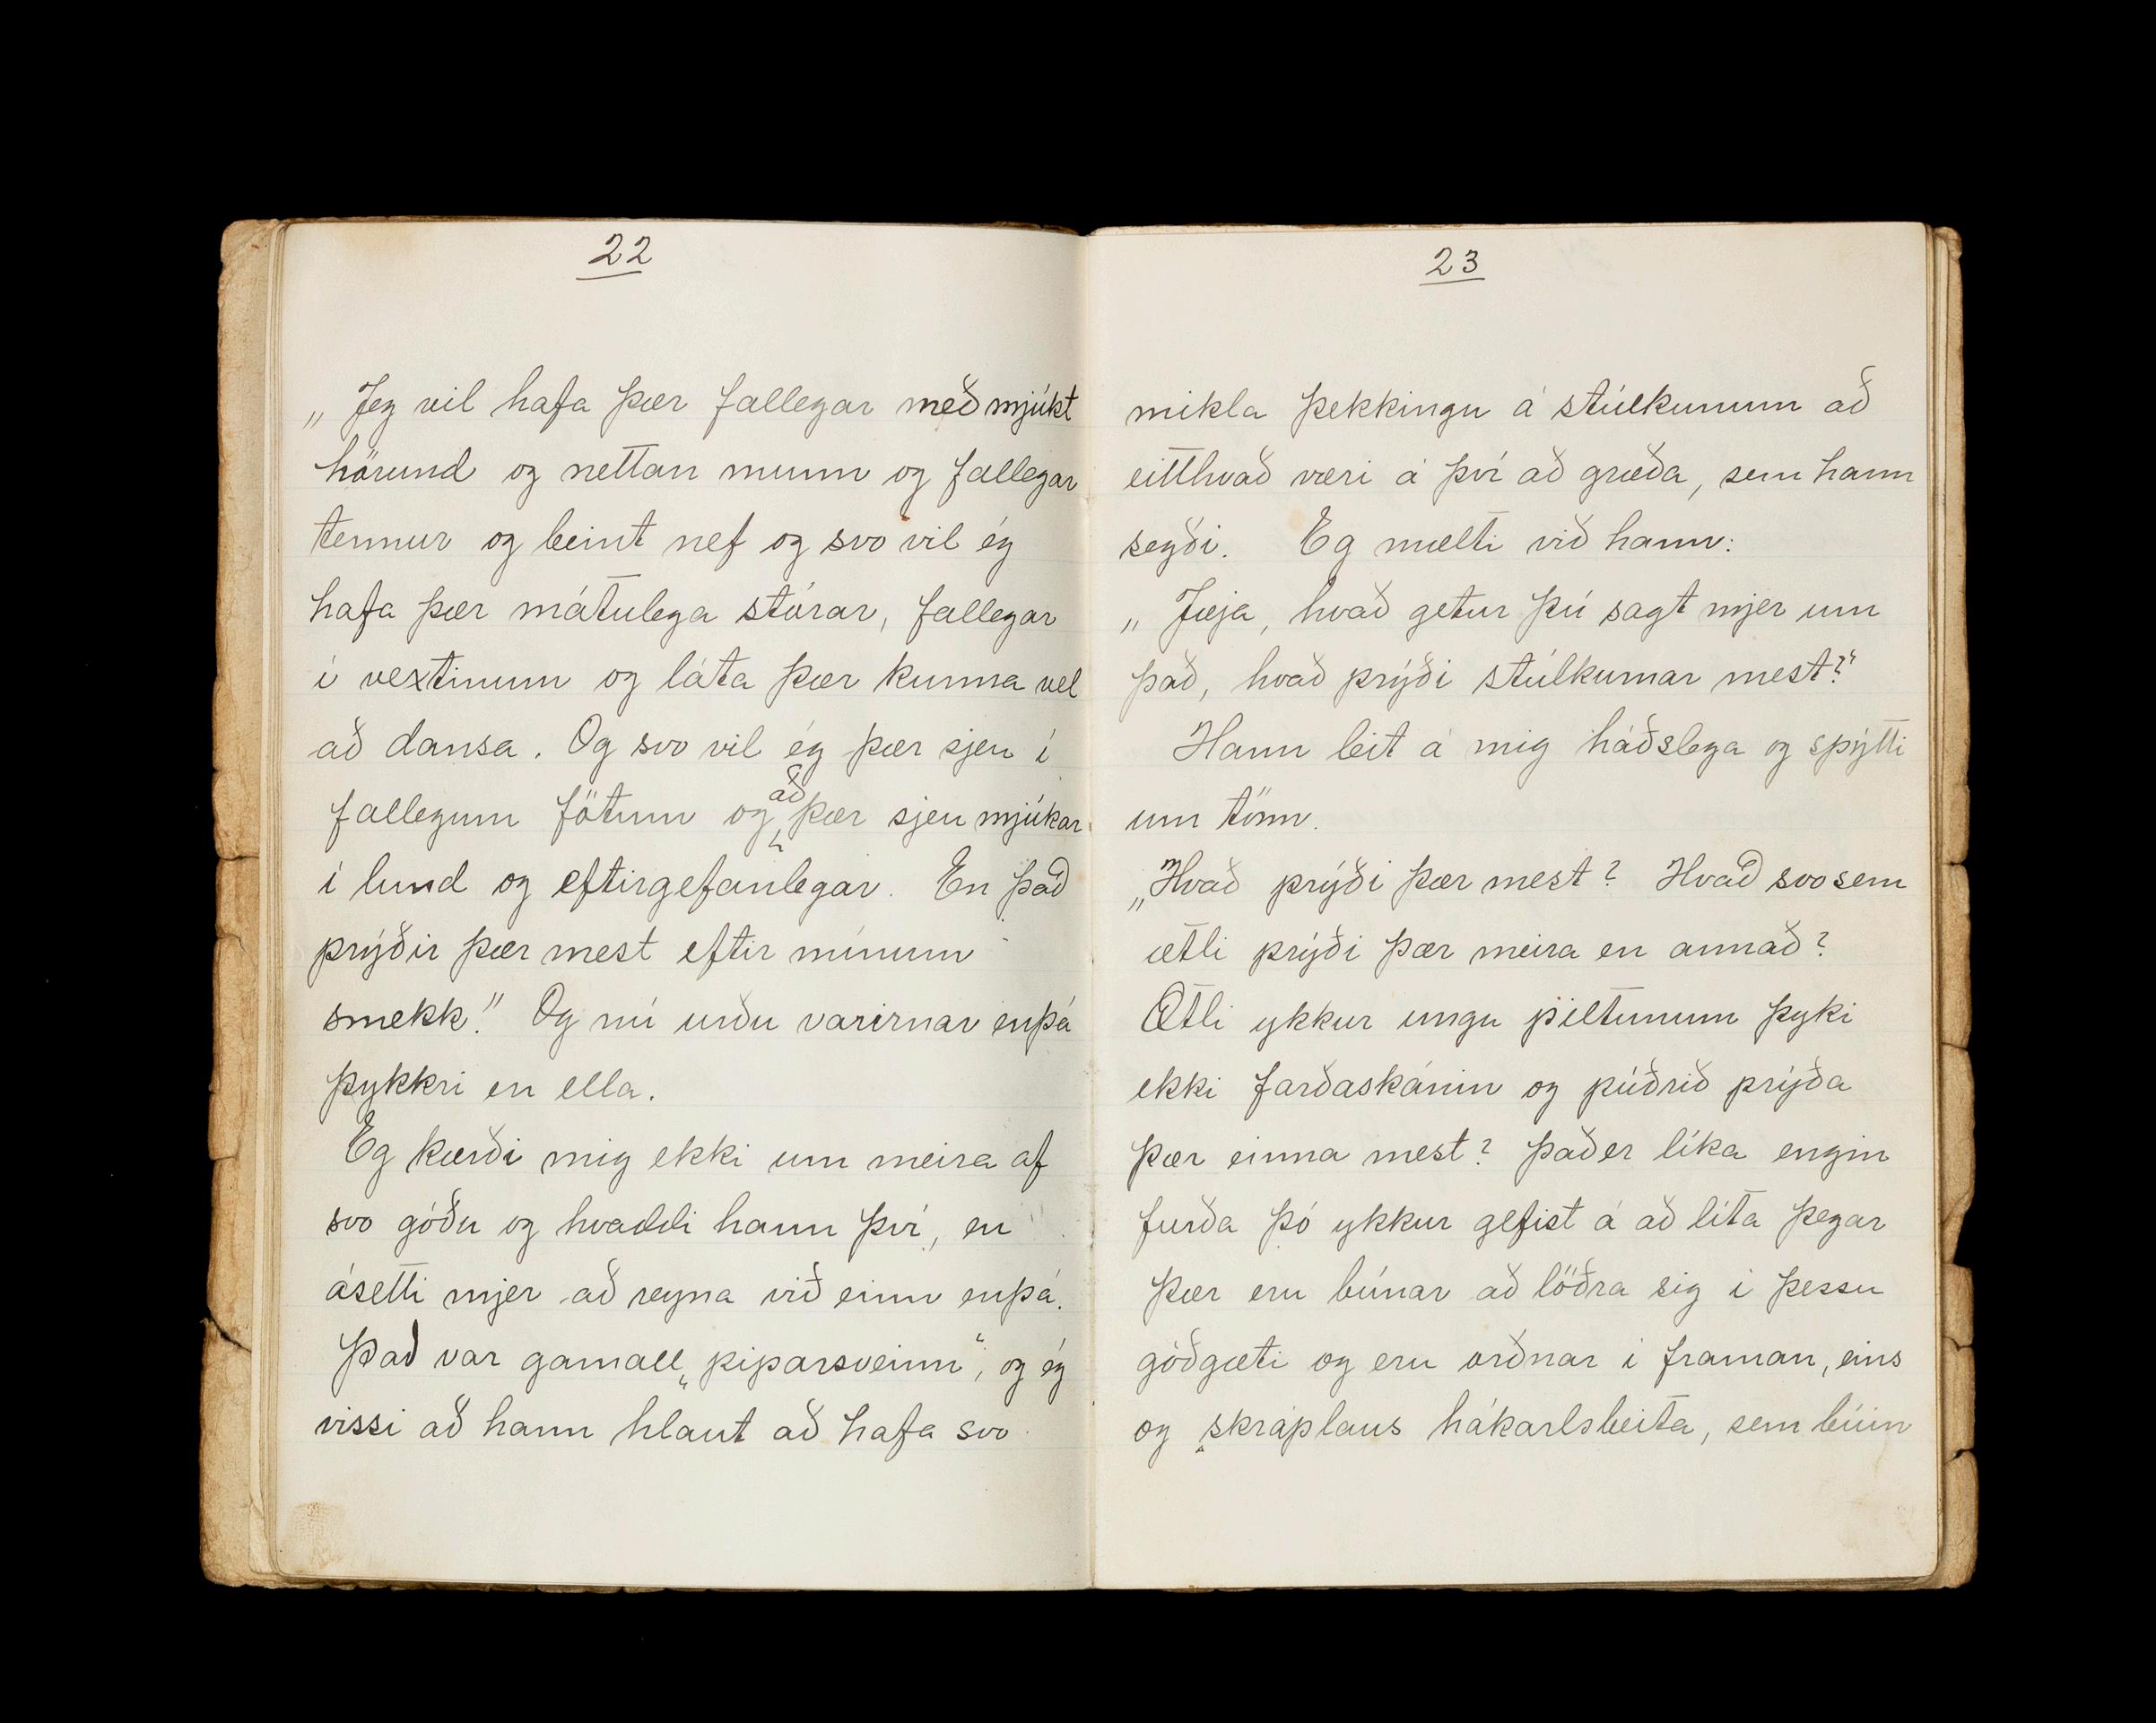 22
„Jeg vil hafa þær fallegar með mjúkt
hörund og nettan munn og fallegar
tennur og beint nef og svo vil ég
hafa þær mátulega stórar, fallegar
í vextinum og láta þær kunna vel
að dansa. Og svo vil ég þær sjeu í
fallegum fötum og að þær sjeu mjúkar
í lund og eftirgefanlegar. En það
prýðir þær mest eftir mínum
smekk." Og nú urðu varirnar enþá
þykkri en ella.
Eg kærði mig ekki um meira af
svo góðu og hvaddi hann því, en
ásetti mjer að reyna við einn enþá.
Það var gamall „piparsveinn“, og ég
vissi að hann hlaut að hafa svo
23
mikla þekkingu á stúlkunum að
eitthvað væri á því að græða, sem hann
segði. Eg mælti við hann:
„Jæja, hvað getur þú sagt mjer um
það, hvað prýði stúlkurnar mest?“
Hann leit á mig háðslega og spýtti
um tönn.
„Hvað prýði þær mest? Hvað svosem
ætli prýði þær meira en annað?
Ætli ykkur ungu piltunum þyki
ekki farðaskánin og púðrið prýða
þær einna mest? Það er líka engin
furða þó ykkur gefist á að líta þegar
þær eru búnar að löðra sig í þessu
góðgæti og eru orðnar í framan, eins
og skráplaus hákarlsbeita, sem búin